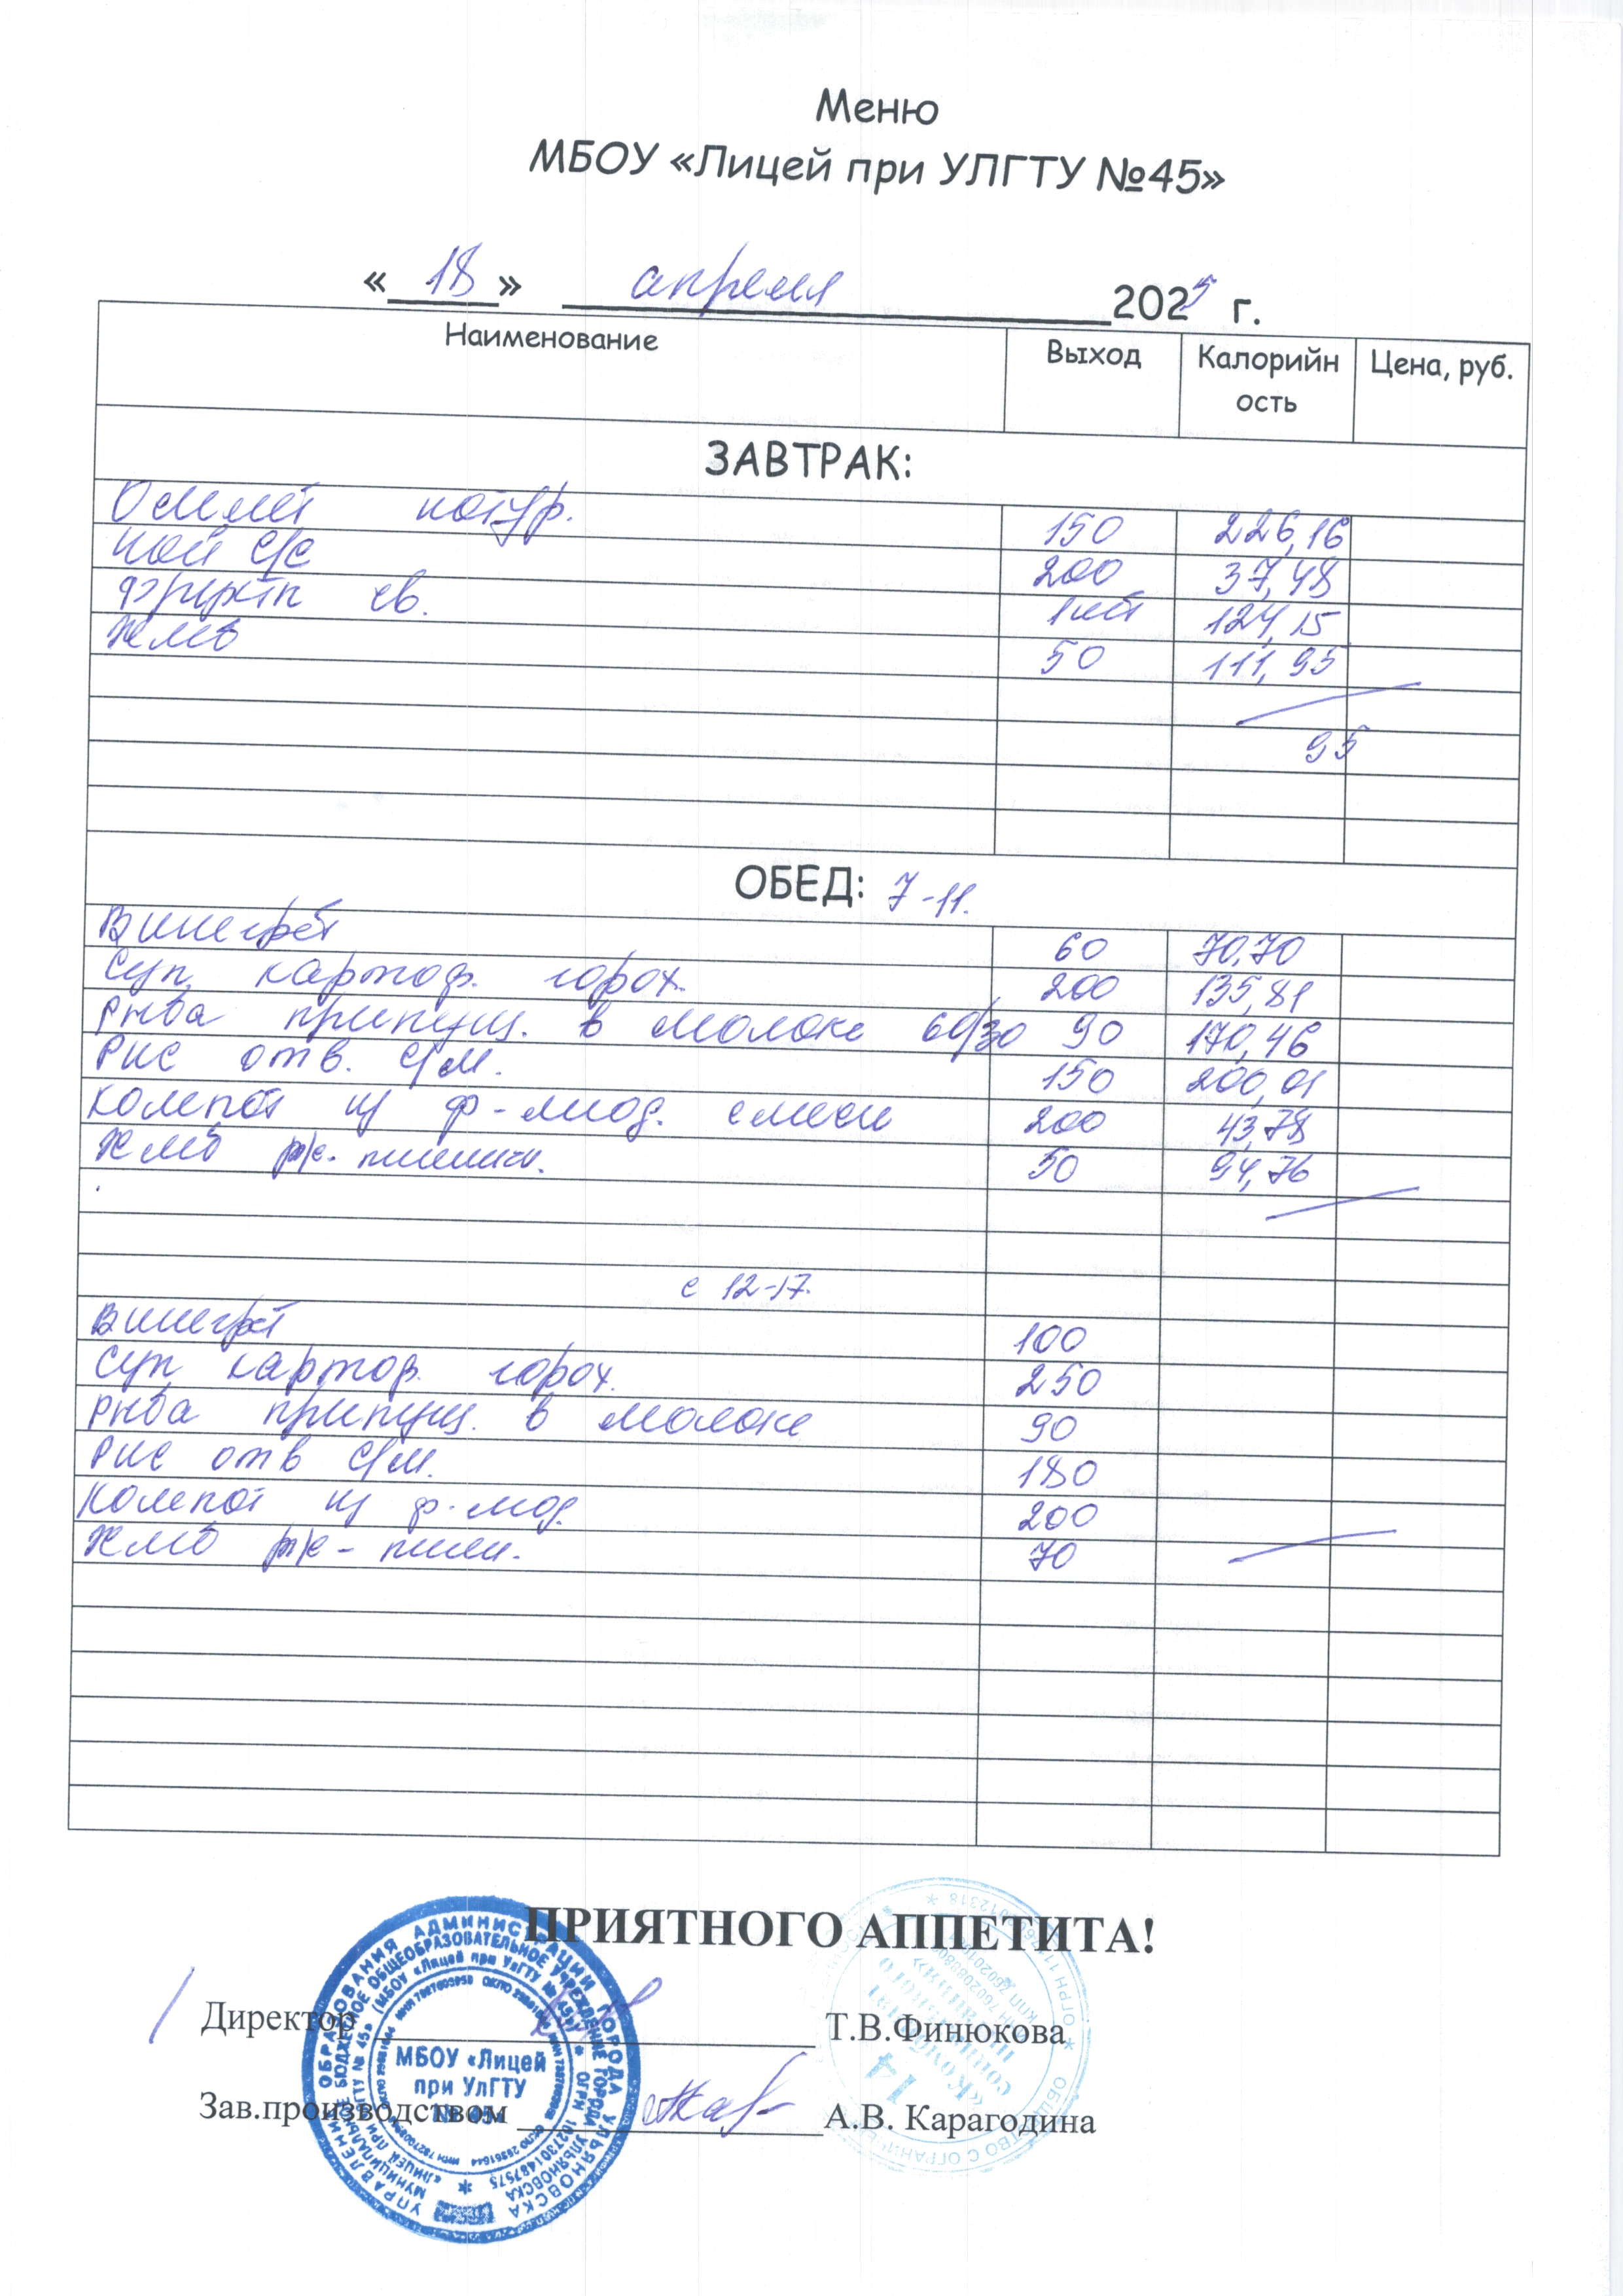 Меню
МБОУ «Лицей при УЛГТУ №45»
«18» апреля 2025 г.
Наименование Выход Калорийность Цена, руб.
ЗАВТРАК:
Омлет натур. 150 226,16
Чай с/с 200 37,48
Фрукты св. 1шт 124,15
Хлеб 50 111,95
95
ОБЕД: 7-11.
Винегрет 60 70,70
Суп картоф. горох. 200 135,81
Рыба припущ. в молоке 60/30 90 170,46
Рис отв. с/м. 150 200,01
Компот из ф-ягод. смеси 200 43,78
Хлеб рж. пшеничн. 50 94,76
с 12-17.
Винегрет 100
Суп картоф. горох. 250
Рыба припущ. в молоке 90
Рис отв с/м. 180
Компот из ф. ягод. 200
Хлеб рж - пшен. 70
ПРИЯТНОГО АППЕТИТА!
Директор Т.В.Финюкова
Зав.производством А.В. Карагодина
МБОУ «Лицей
при УлГТУ
№ 45»